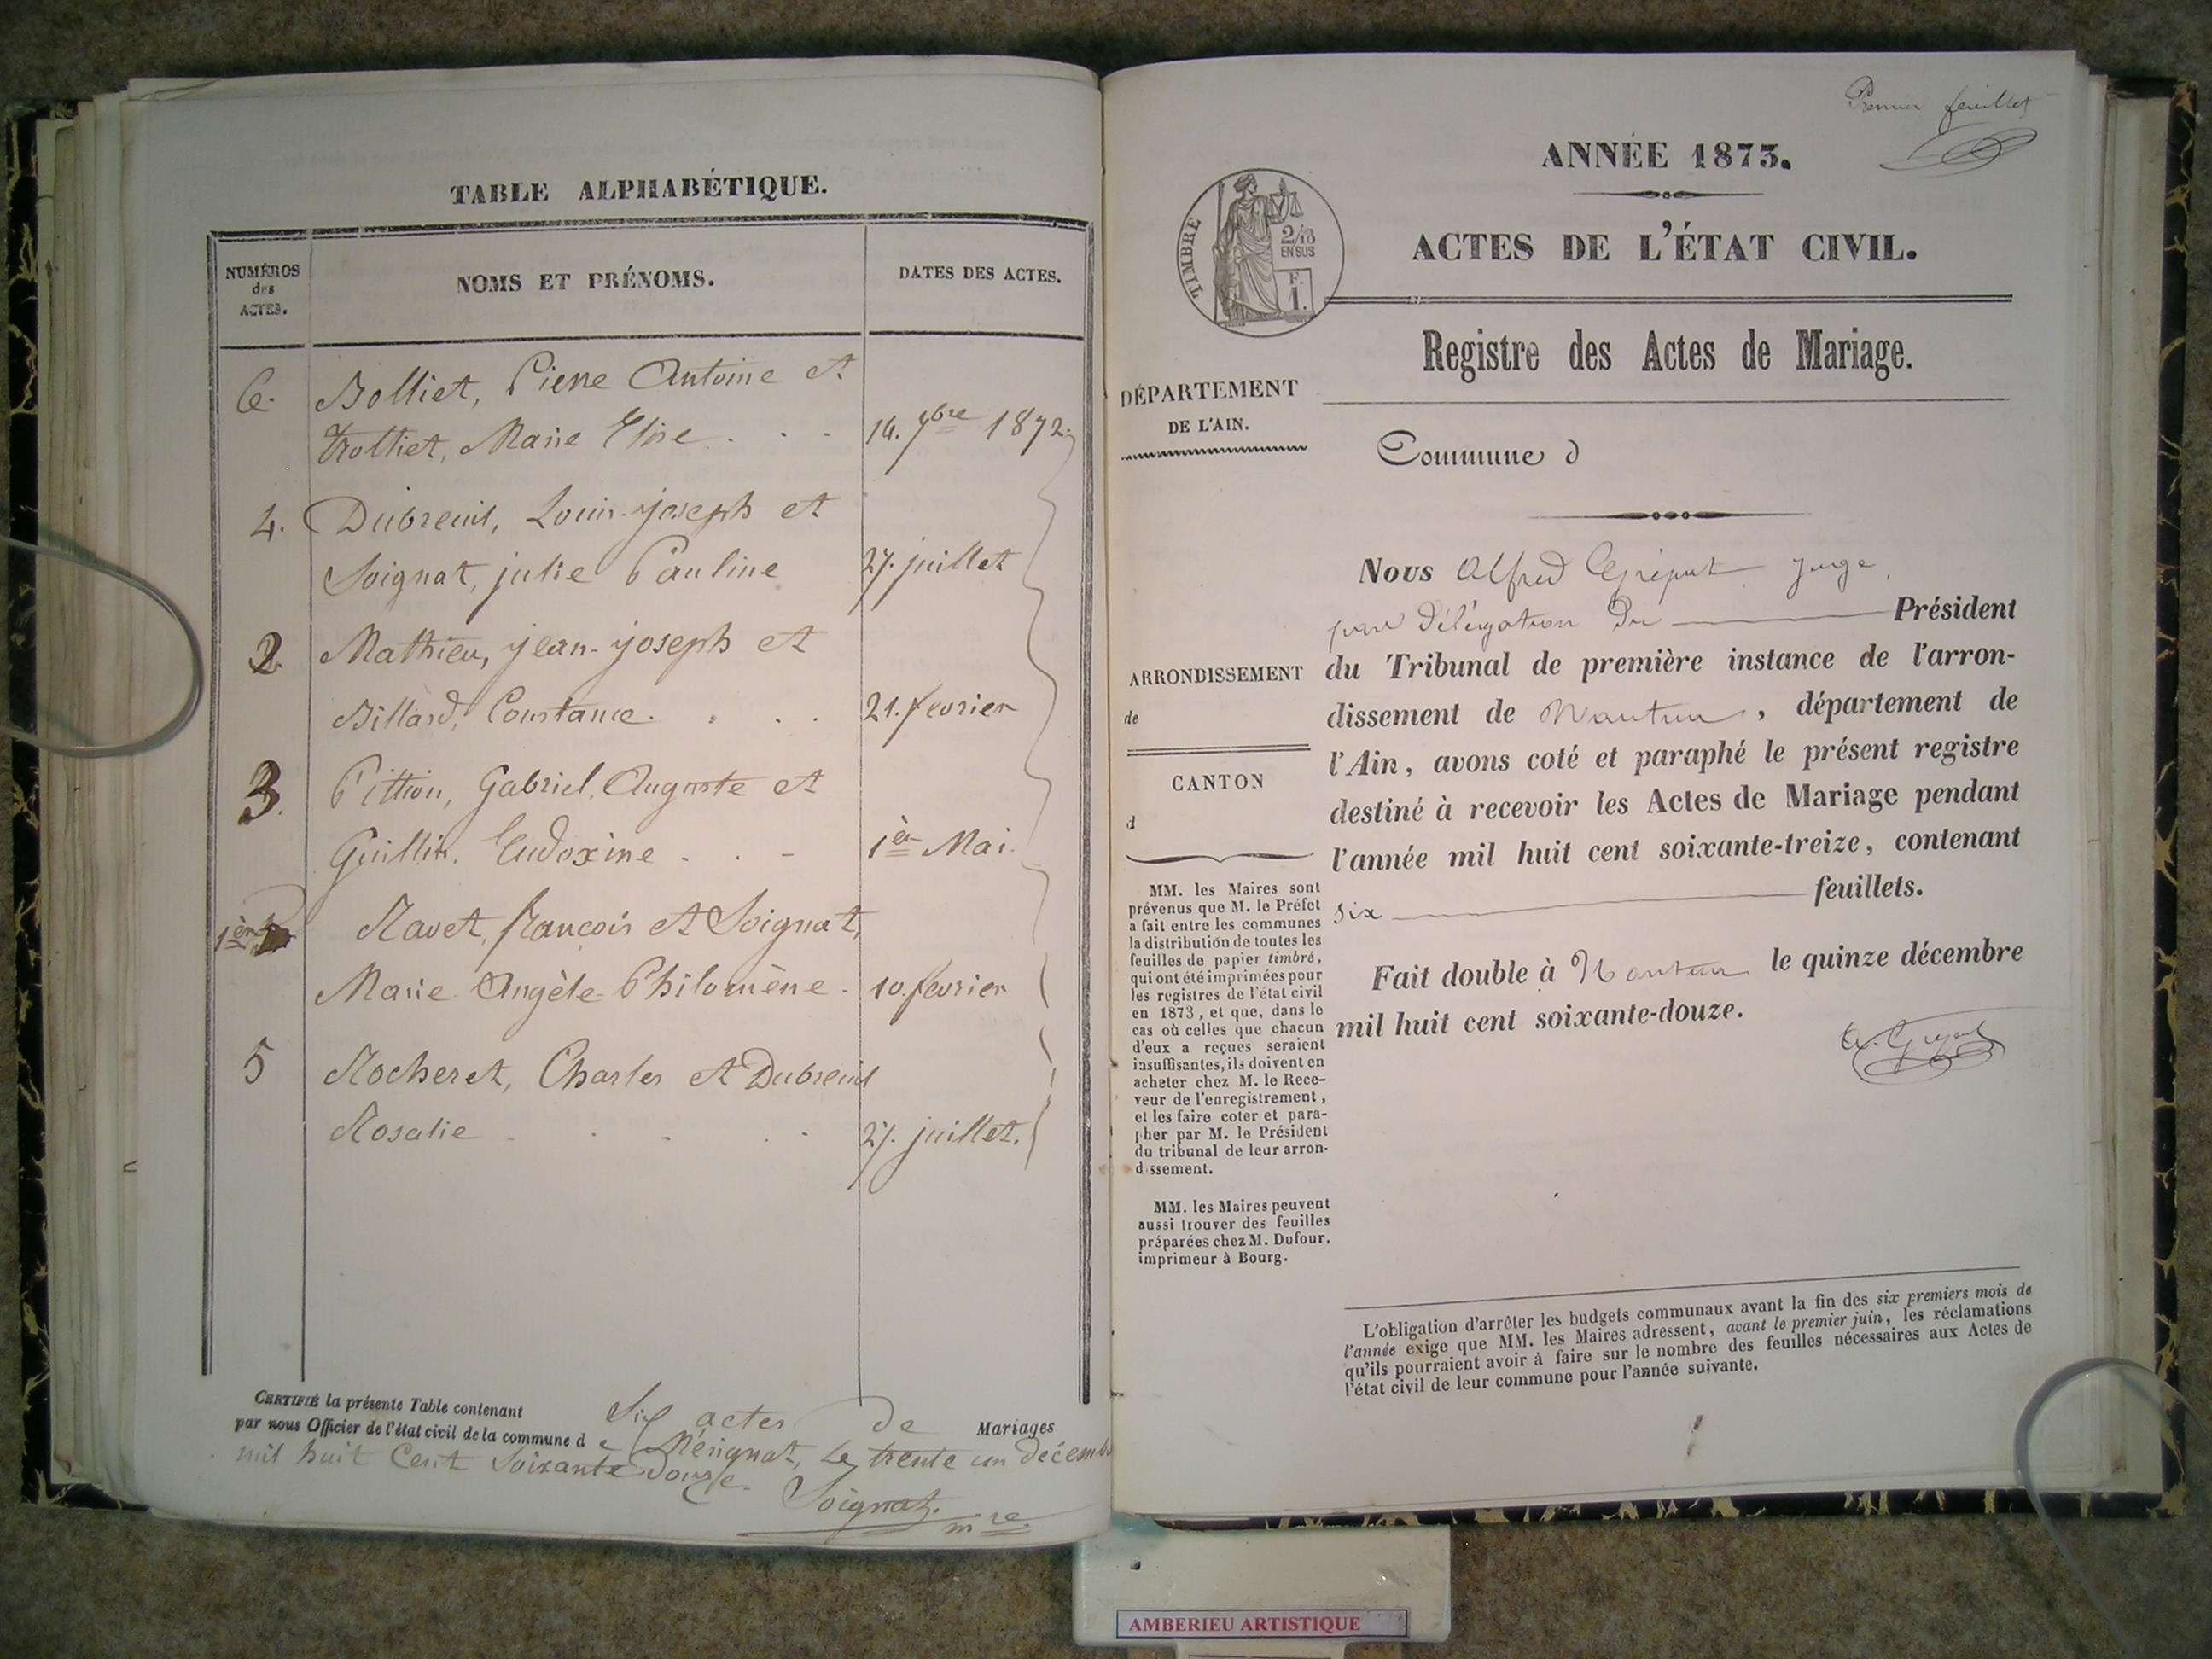 TABLE ALPHABÉTIQUE.
NUMÉROS
des
ACTES.
NOMS ET PRÉNOMS.
DATES DES ACTES.
6. Bolliet, Pierre Antoine et
Trolliet, Marie Elise . . . 14. 7bre 1872.
4. Dubreuil, Louis-joseph et
Soignat, julie Pauline 27. juillet
2 Mathieu, jean-joseph et
Billard, Constance. . . . 21. fevrier
3. Pittion, Gabriel, Auguste et
Guillin. Eudoxine . . - 1er Mai.
1er Ravet, francois et Soignat,
Marie Angèle-Philomène. 10. fevrier
5 Rocheret, Charles et Dubreuil
Rosalie . . . . . 27. juillet.
CERTIFIÉ la présente Table contenant Six actes de Mariages
par nous Officier de l'état civil de la commune de Mérignat, Le trente un Décemb
mil huit Cent Soixante Douze.
Soignat.
mre
Premier feuillet
ANNÉE 1873.
ACTES DE L'ÉTAT CIVIL.
TIMBRE
2/10
EN SUS
F.
1.
Registre des Actes de Mariage.
DÉPARTEMENT
DE L'AIN.
Commune d
ARRONDISSEMENT
de
CANTON
d
MM. les Maires sont
prévenus que M. le Préfet
a fait entre les communes
la distribution de toutes les
feuilles de papier timbré,
qui ont été imprimées pour
les registres de l'état civil
en 1873, et que, dans le
cas où celles que chacun
d'eux a reçues seraient
insuffisantes, ils doivent en
acheter chez M. le Rece-
veur de l'enregistrement,
et les faire coter et para-
pher par M. le Président
du tribunal de leur arron-
dissement.
MM. les Maires peuvent
aussi trouver des feuilles
préparées chez M. Dufour,
imprimeur à Bourg.
Nous Alfred juge
par Délégation Du Président
du Tribunal de première instance de l'arron-
dissement de Nantua, département de
l'Ain, avons coté et paraphé le présent registre
destiné à recevoir les Actes de Mariage pendant
l'année mil huit cent soixante-treize, contenant
six feuillets.
Fait double à Nantua le quinze décembre
mil huit cent soixante-douze.
L'obligation d'arrêter les budgets communaux avant la fin des six premiers mois de
l'année exige que MM. les Maires adressent, avant le premier juin, les réclamations
qu'ils pourraient avoir à faire sur le nombre des feuilles nécessaires aux Actes de
l'état civil de leur commune pour l'année suivante.
AMBERIEU ARTISTIQUE